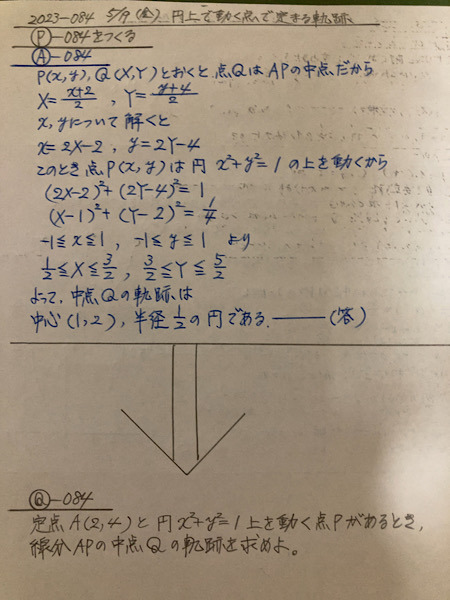 2023-084 5/19(金) 円上で動く点で定まる軌跡
Ⓟ-084をつくる
Ⓐ-084
P(x,y), Q(X,Y)とおくと点QはAPの中点だから
X=(x+2)/2 , Y=(y+4)/2
x,yについて解くと
x=2X-2 , y=2Y-4
このとき点P(x,y)は円 x²+y²=1 の上を動くから
(2X-2)²+(2Y-4)²=1
(X-1)²+(Y-2)²=1/4
-1≦x≦1 , -1≦y≦1 より
1/2≦X≦3/2 , 3/2≦Y≦5/2
よって, 中点Qの軌跡は
中心(1,2), 半径1/2の円である. ——(答)
Ⓠ-084
定点A(2,4)と円x²+y²=1上を動く点Pがあるとき,
線分APの中点Qの軌跡を求めよ。